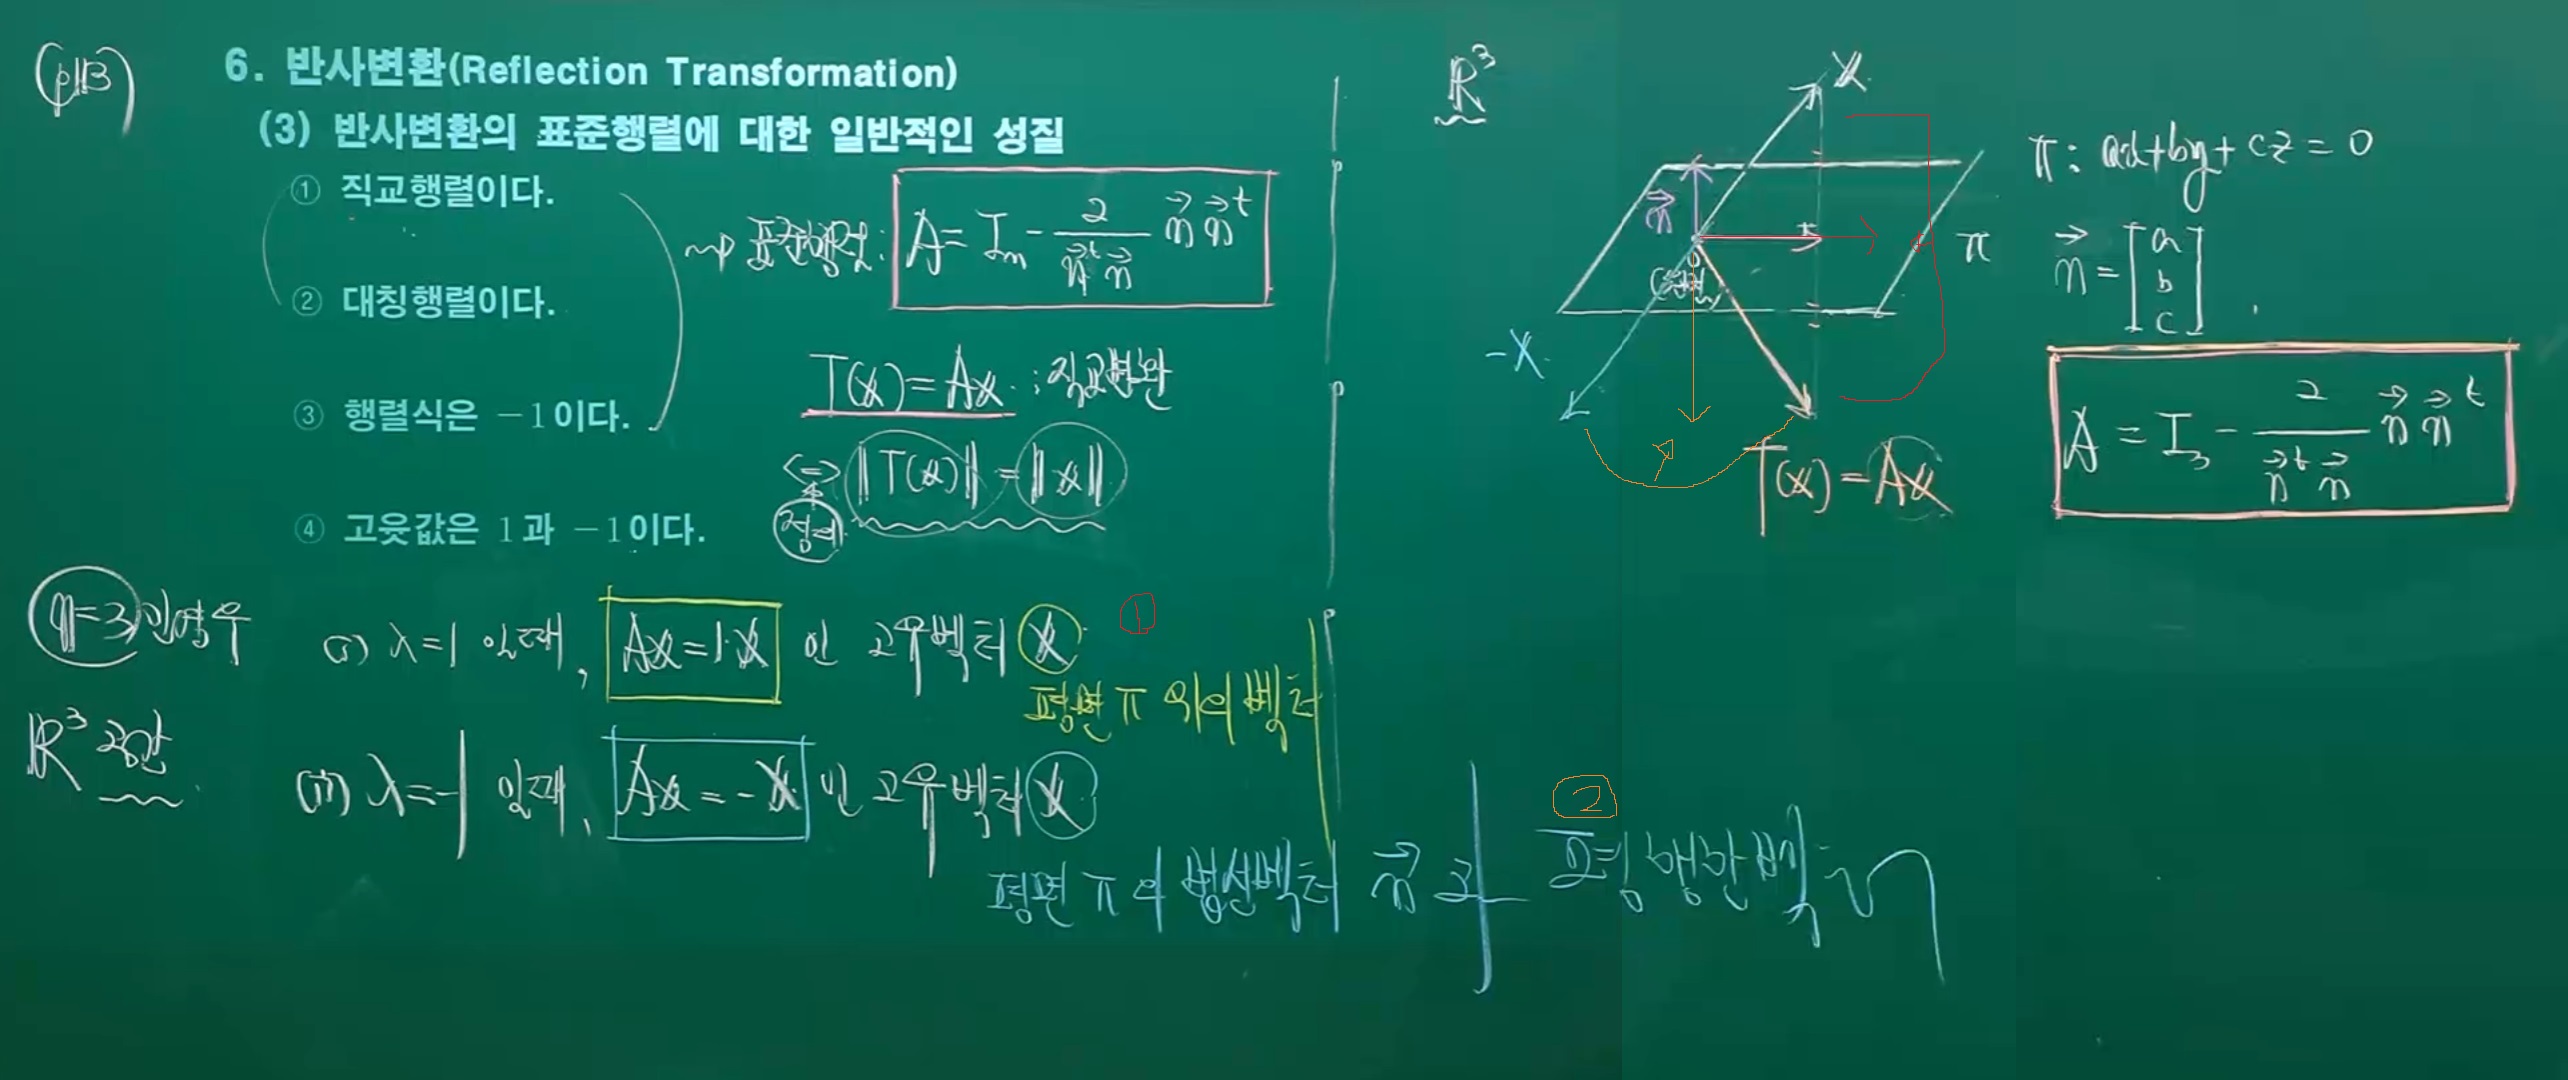 (p113)
6. 반사변환(Reflection Transformation)
(3) 반사변환의 표준행렬에 대한 일반적인 성질
① 직교행렬이다.
② 대칭행렬이다.
③ 행렬식은 −1이다.
④ 고윳값은 1과 −1이다.
⇝ 표준행렬: A = Iₙ − 2/(n⃗ᵗ n⃗) n⃗ n⃗ᵗ
T(x) = Ax : 직교변환
⇔ ‖T(x)‖ = ‖x‖
정리
n=3인경우
R³ 공간
(i) λ=1 일때, Ax=1·x 인 고유벡터 x ①
평면 π 위의 벡터
(ii) λ=-1 일때, Ax = -x 인 고유벡터 x
평면 π의 법선벡터 n⃗ 과 평행한 벡터 ②
R³
x
n⃗
π
-x
T(x) = Ax
π: ax+by+cz = 0
n⃗ = [a b c]
A = I₃ − 2/(n⃗ᵗ n⃗) n⃗ n⃗ᵗ